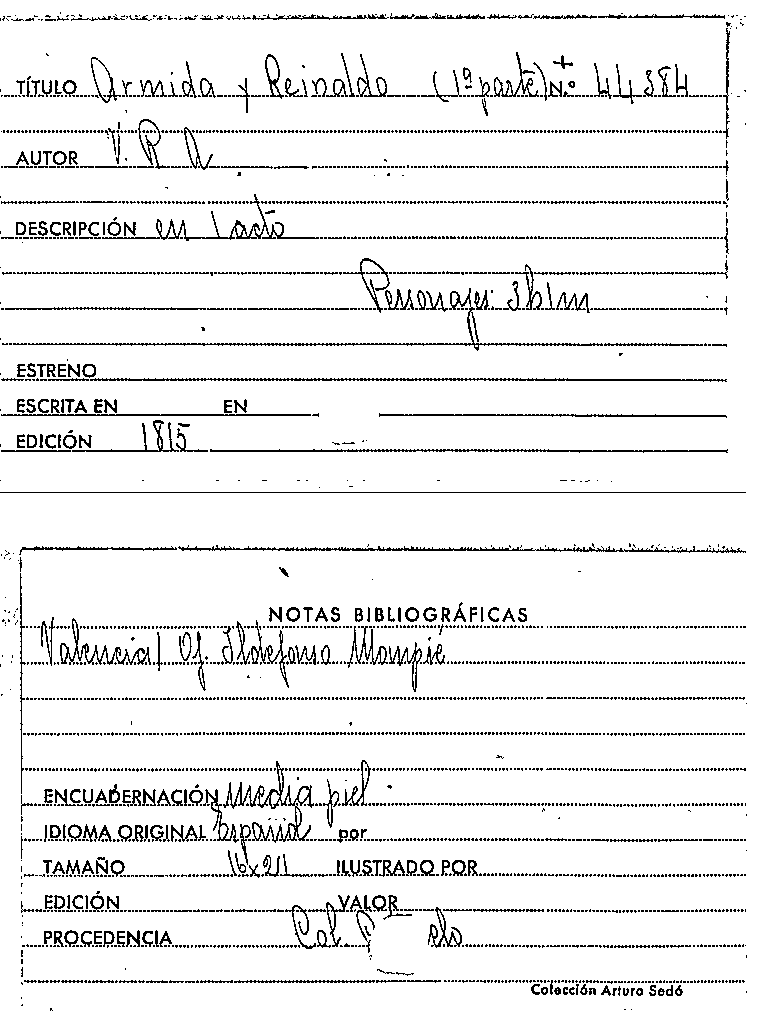 TÍTULO Armida y Reinaldo (1ª parte) N.º 44384
AUTOR V. R A
DESCRIPCIÓN en 1 acto
Personajes: 3h 1m
ESTRENO
ESCRITA EN EN
EDICIÓN 1815
NOTAS BIBLIOGRÁFICAS
Valencia / Of. Ildefonso Mompié
ENCUADERNACIÓN media piel
IDIOMA ORIGINAL Español por
TAMAÑO 16x211 ILUSTRADO POR
EDICIÓN VALOR
PROCEDENCIA Col.
Colección Arturo Sedó